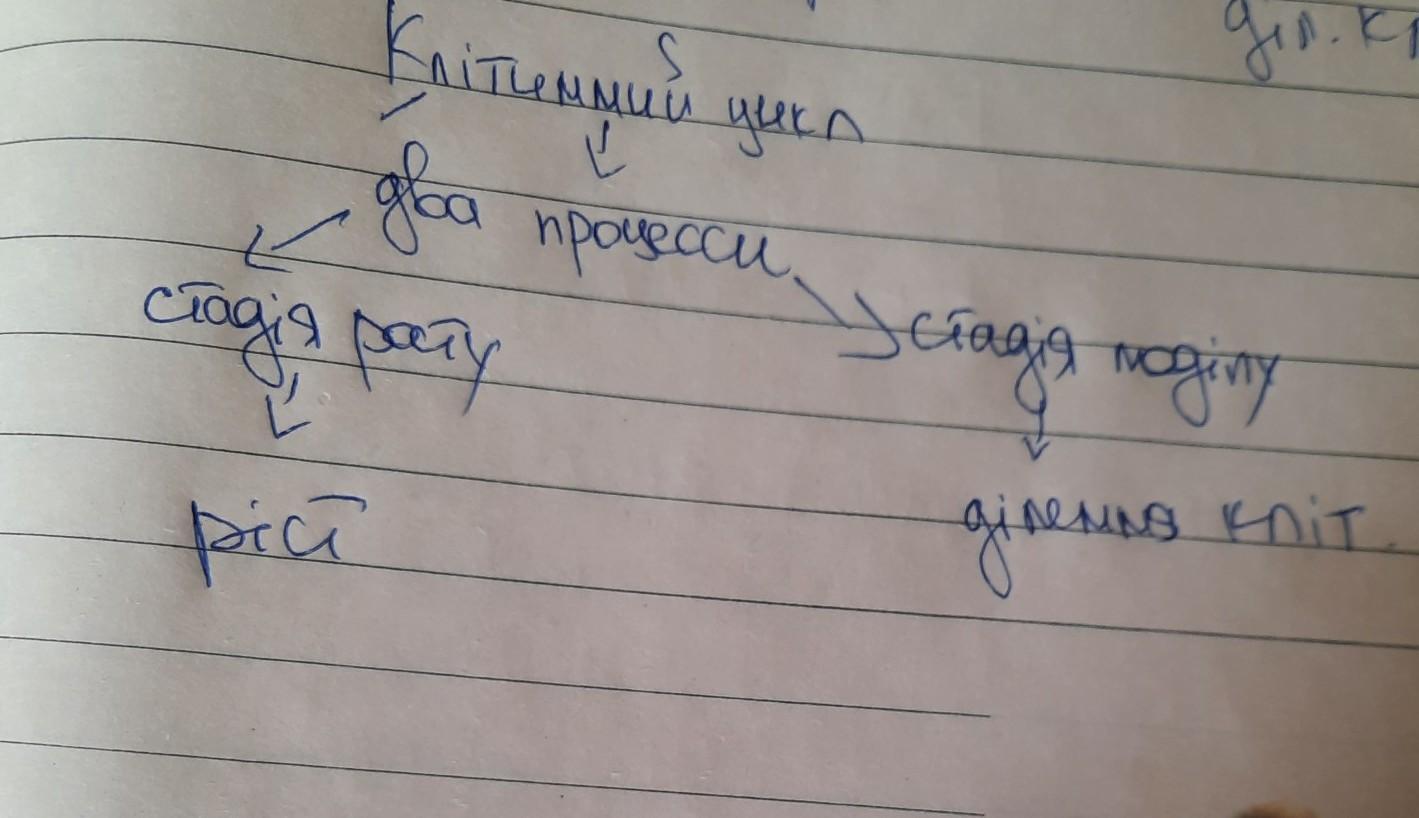 діл. кл
Клітинний цикл
два процесси
стадія росту
стадія поділу
ріст
ділення кліт.